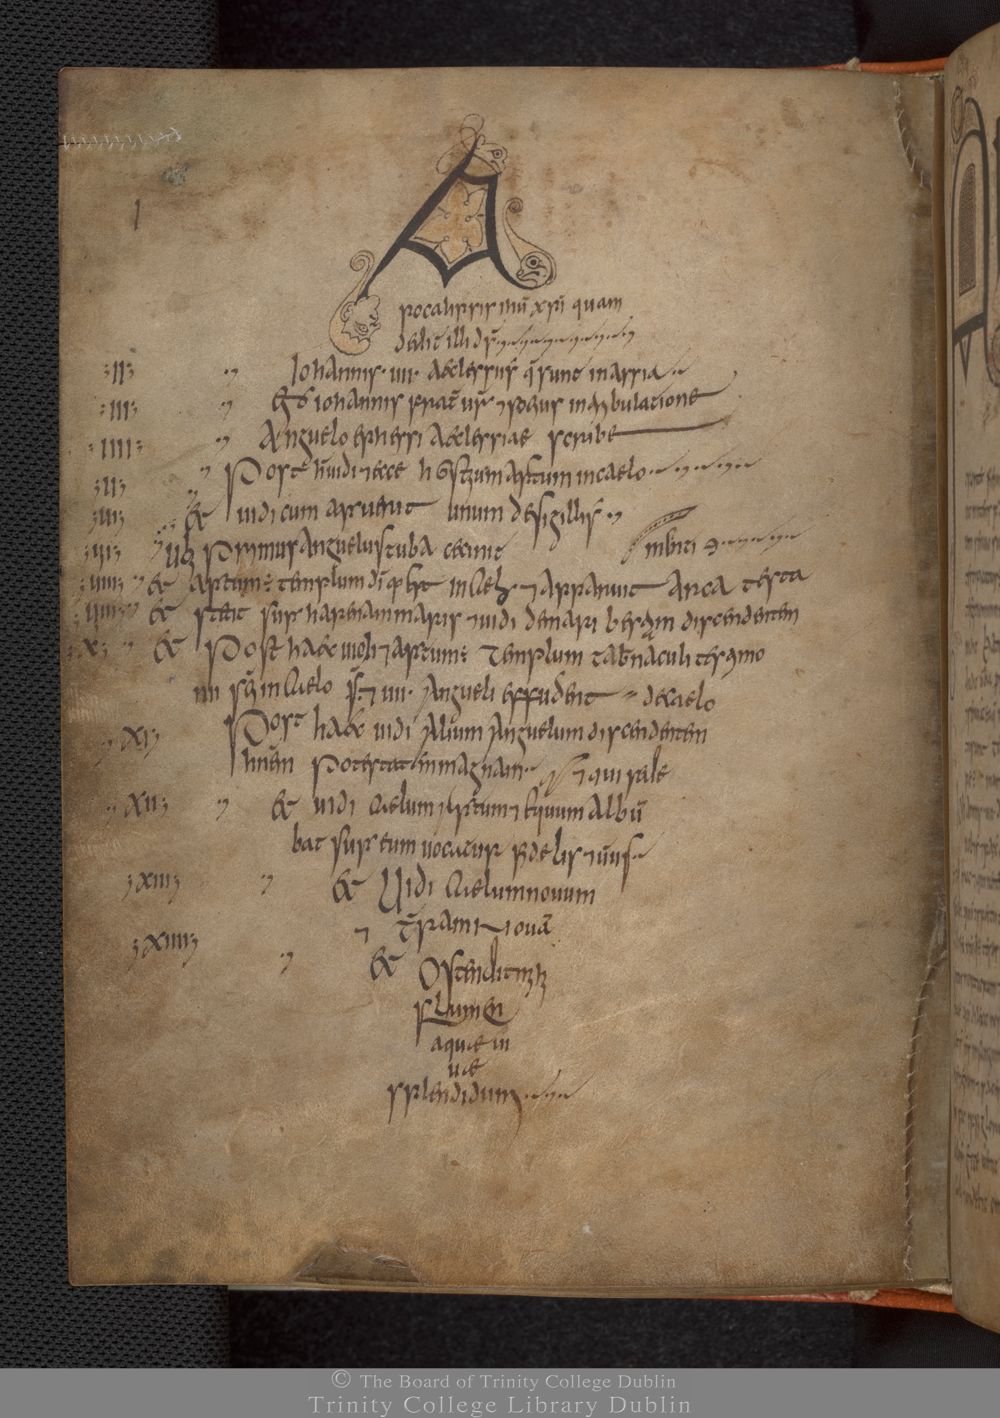 I
A
pocalipsis ihū xp̄i quam
dedit illi d̄s
·II· Iohannis ·uii· aeclessiis q̄ sunt in assia
·III· Eḡ iohannis frat̄ ur̄ ⁊ socius in tribulatione
·IIII· Anguelo ephessi aeclessiae scribe
Post h̄ uidi ⁊ ecce hostium apertum in caelo
Et uidi cum aperuerit unum de sigillis
Primus anguelus tuba cecinit
Et apertum: templum dī in cael ⁊ apparuit arca testa
Et stetit supr harenam maris ⁊ uidi de mari bestiam discendentem
·X· Et post haec uidi ⁊ apertum: templum tab̄naculi testimo
nii in caelo ⁊ uii angueli effuderit de caelo
·XI· Post haec uidi alium anguelum discendentem
potestatem magnam
·XII· Et uidi caelum apertum ⁊ equum albū
supr eum uocatur fidelis ⁊
·XIII· Et uidi caelum nouum
⁊ t̄ram nouā
·XIIII· Et ostendit
flumen
aquae ui
uae
splendidum
© The Board of Trinity College Dublin
Trinity College Library Dublin